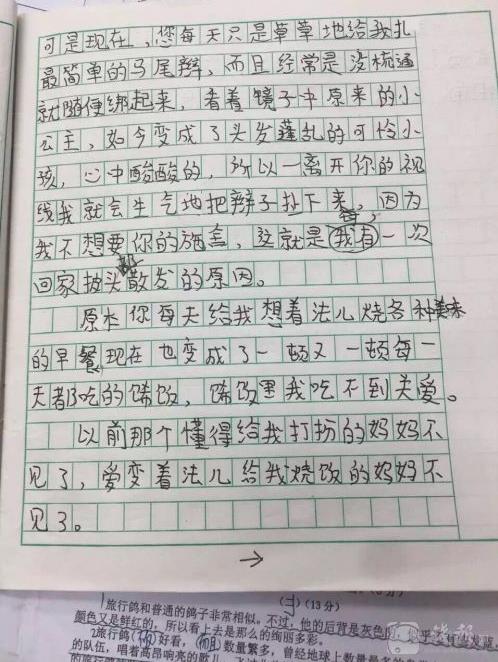 可是现在,您每天只是草草地给我扎
最简单的马尾辫,而且经常是没梳通
就随便绑起来,看着镜子中原来的小
公主,如今变成了头发蓬乱的可怜小
孩,心中酸酸的,所以一离开你的视
线我就会生气地把辫子扯下来,因为
我不想要你的施舍,这就是我每一次
回家披头散发的原因。
原本你每天给我想着法儿烧各种美味
的早餐现在也变成了一顿又一顿每一
天都吃的馋饭,馋饭里我吃不到关爱。
以前那个懂得给我打扮的妈妈不
见了,爱变着法儿给我烧饭的妈妈不
见了。
→
(13分)
1旅行鸽和普通的鸽子非常相似。不过,他的后背是灰色的,
颜色又是鲜红的,所以看上去是那么的绚丽多彩。
2旅行鸽(不但)好看,(而且)数量繁多,曾经地球上数量最多
的队伍,唱着高昂响亮的歌儿